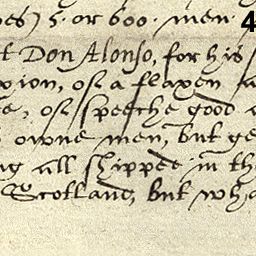 5. or 600. men 4
Don Alonso, for his
of a flaxen
of speeche good
owne men, but ge
all shipped in th
Scotland, but wha